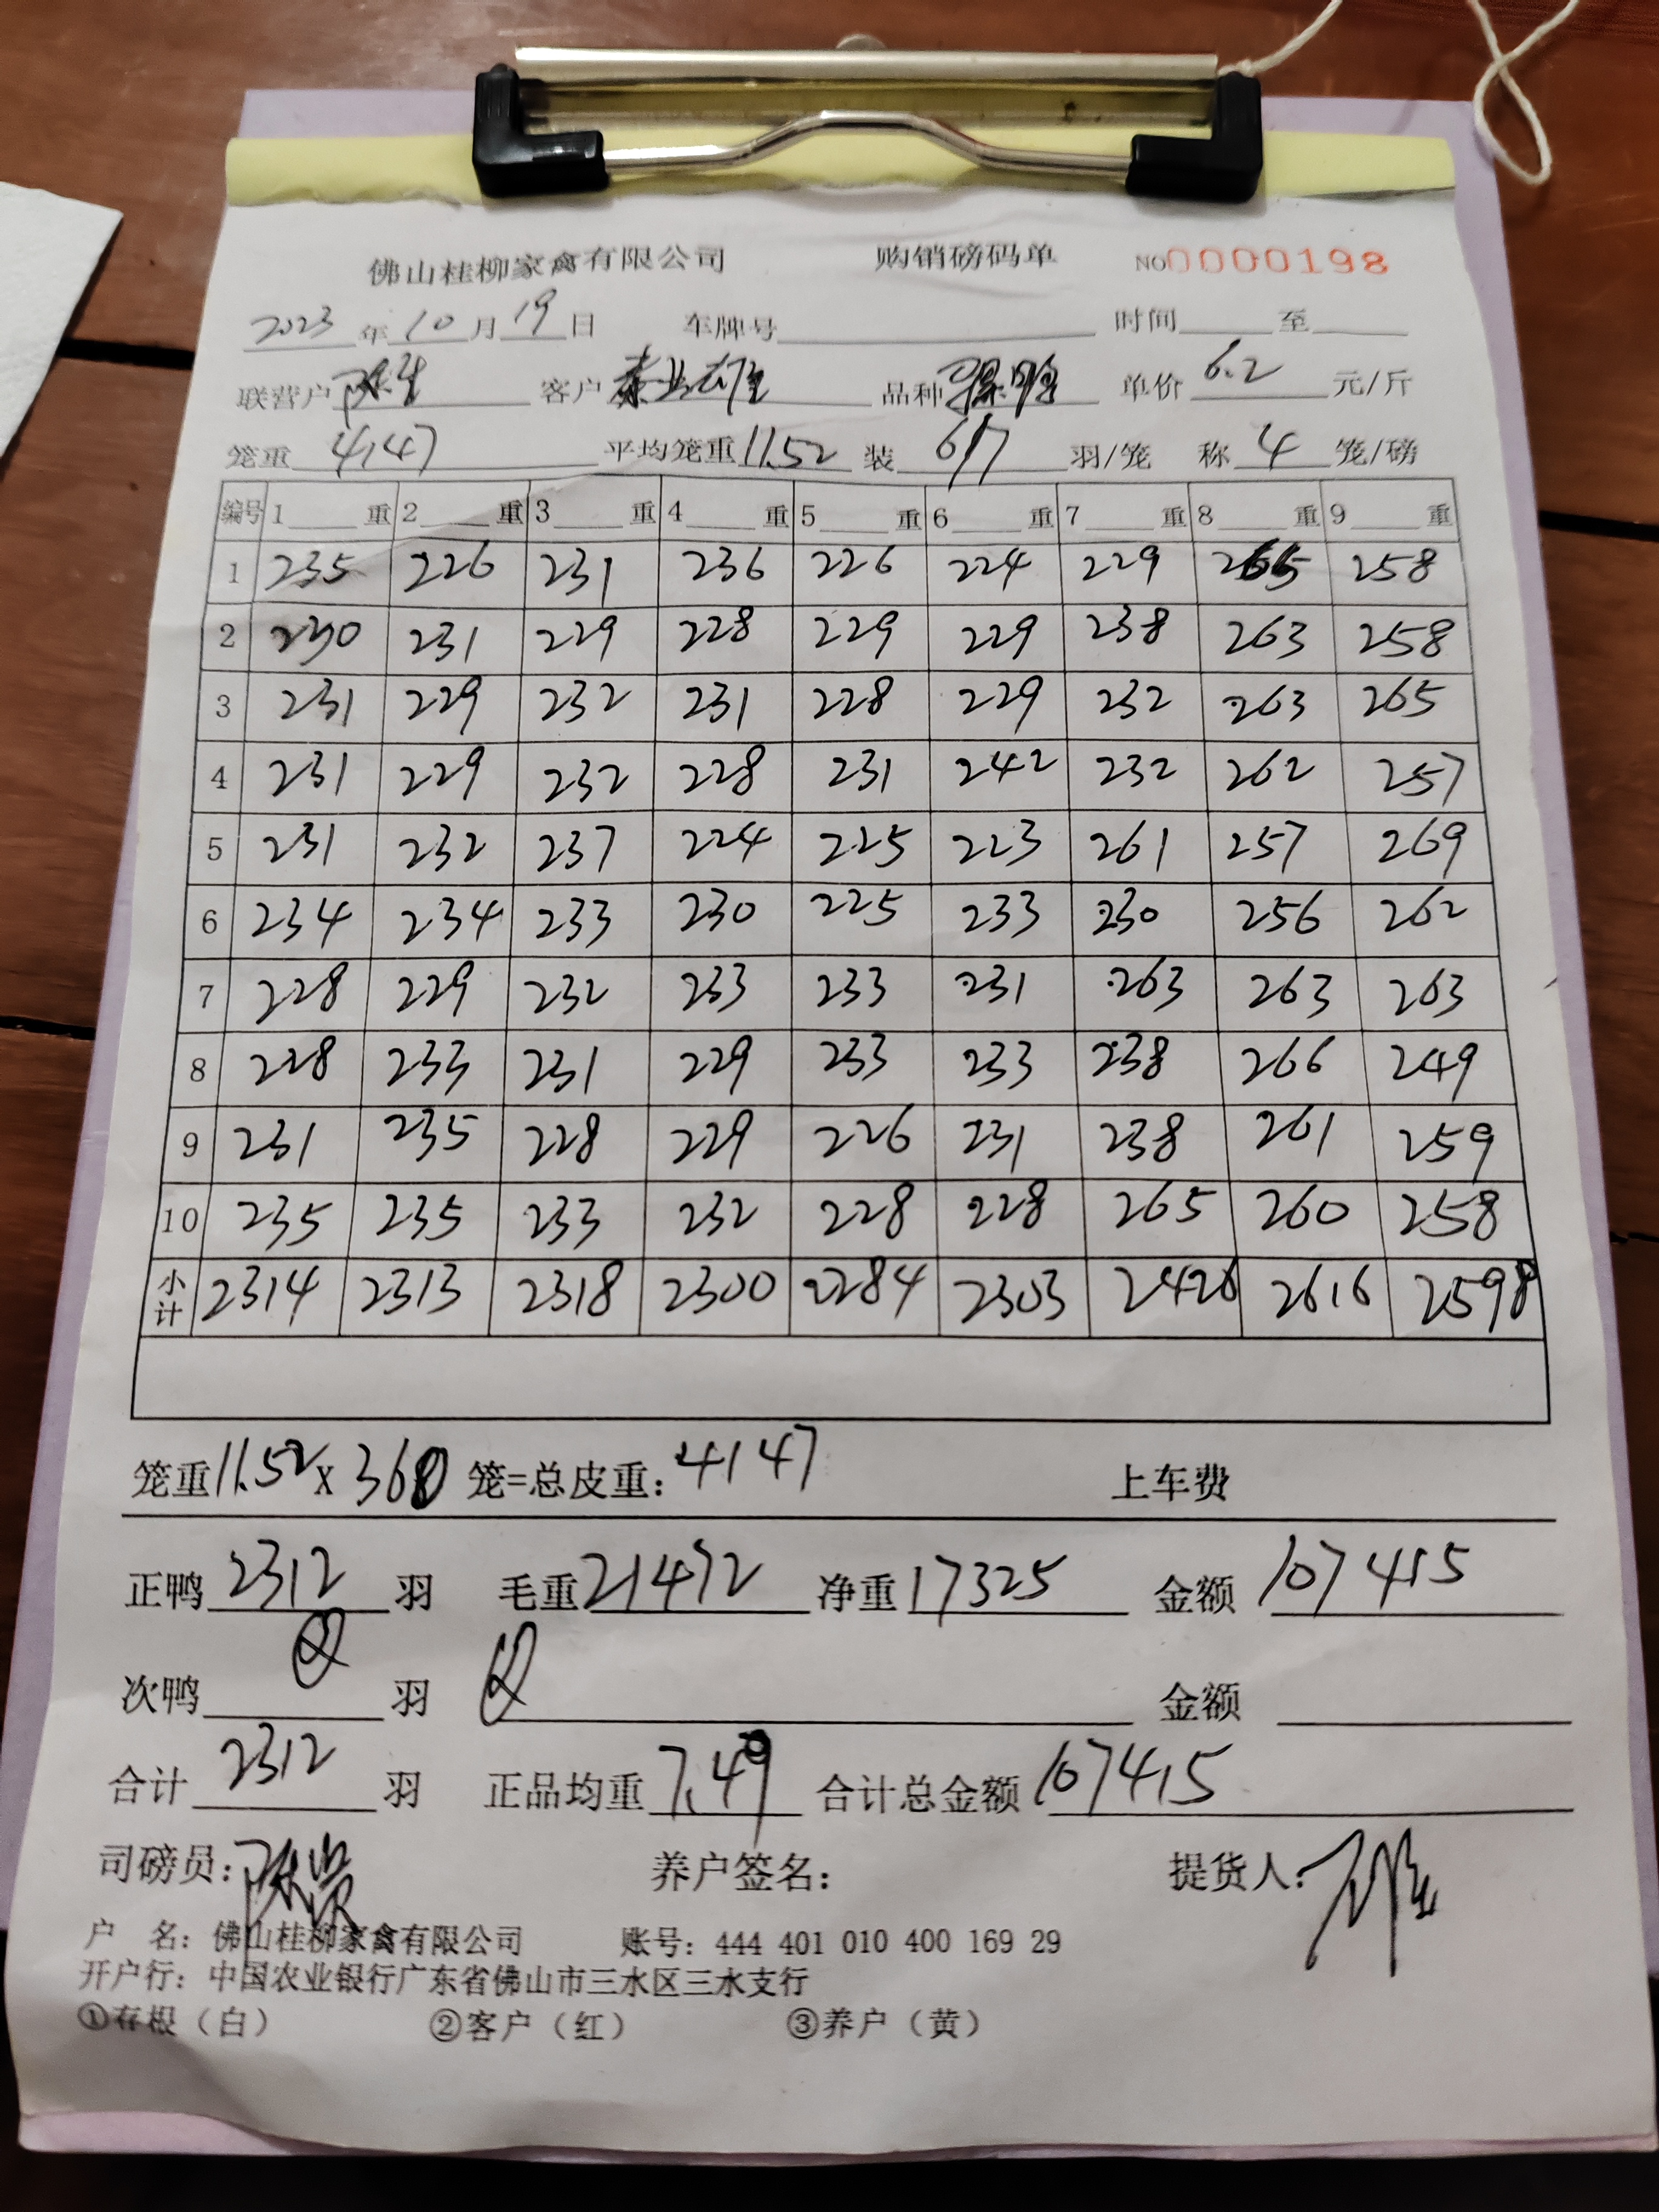 佛山桂柳家禽有限公司 购销磅码单 NO 0000198
2023年10月19日 车牌号 时间 至
联营户 陈生 客户 品种 单价 6.2 元/斤
笼重 4147 平均笼重 11.52 装 6/7 羽/笼 称 4 笼/磅
编号 1 重 2 重 3 重 4 重 5 重 6 重 7 重 8 重 9 重
1 235 226 231 236 226 224 229 265 258
2 230 231 229 228 229 229 238 263 258
3 231 229 232 231 228 229 232 263 265
4 231 229 232 228 231 242 232 262 257
5 231 232 237 224 225 223 261 257 269
6 234 234 233 230 225 233 230 256 262
7 228 229 232 233 233 231 263 263 263
8 228 233 231 229 233 233 238 266 249
9 231 235 228 229 226 231 238 261 259
10 235 235 233 232 228 228 265 260 258
小计 2314 2313 2318 2300 2284 2303 2426 2616 2598
笼重 11.52 x 360 笼=总皮重: 4147 上车费
正鸭 2312 羽 毛重 21472 净重 17325 金额 107415
次鸭 羽 金额
合计 2312 羽 正品均重 7.49 合计总金额 107415
司磅员: 养户签名: 提货人:
户 名: 佛山桂柳家禽有限公司 账号: 444 401 010 400 169 29
开户行: 中国农业银行广东省佛山市三水区三水支行
①存根(白) ②客户(红) ③养户(黄)